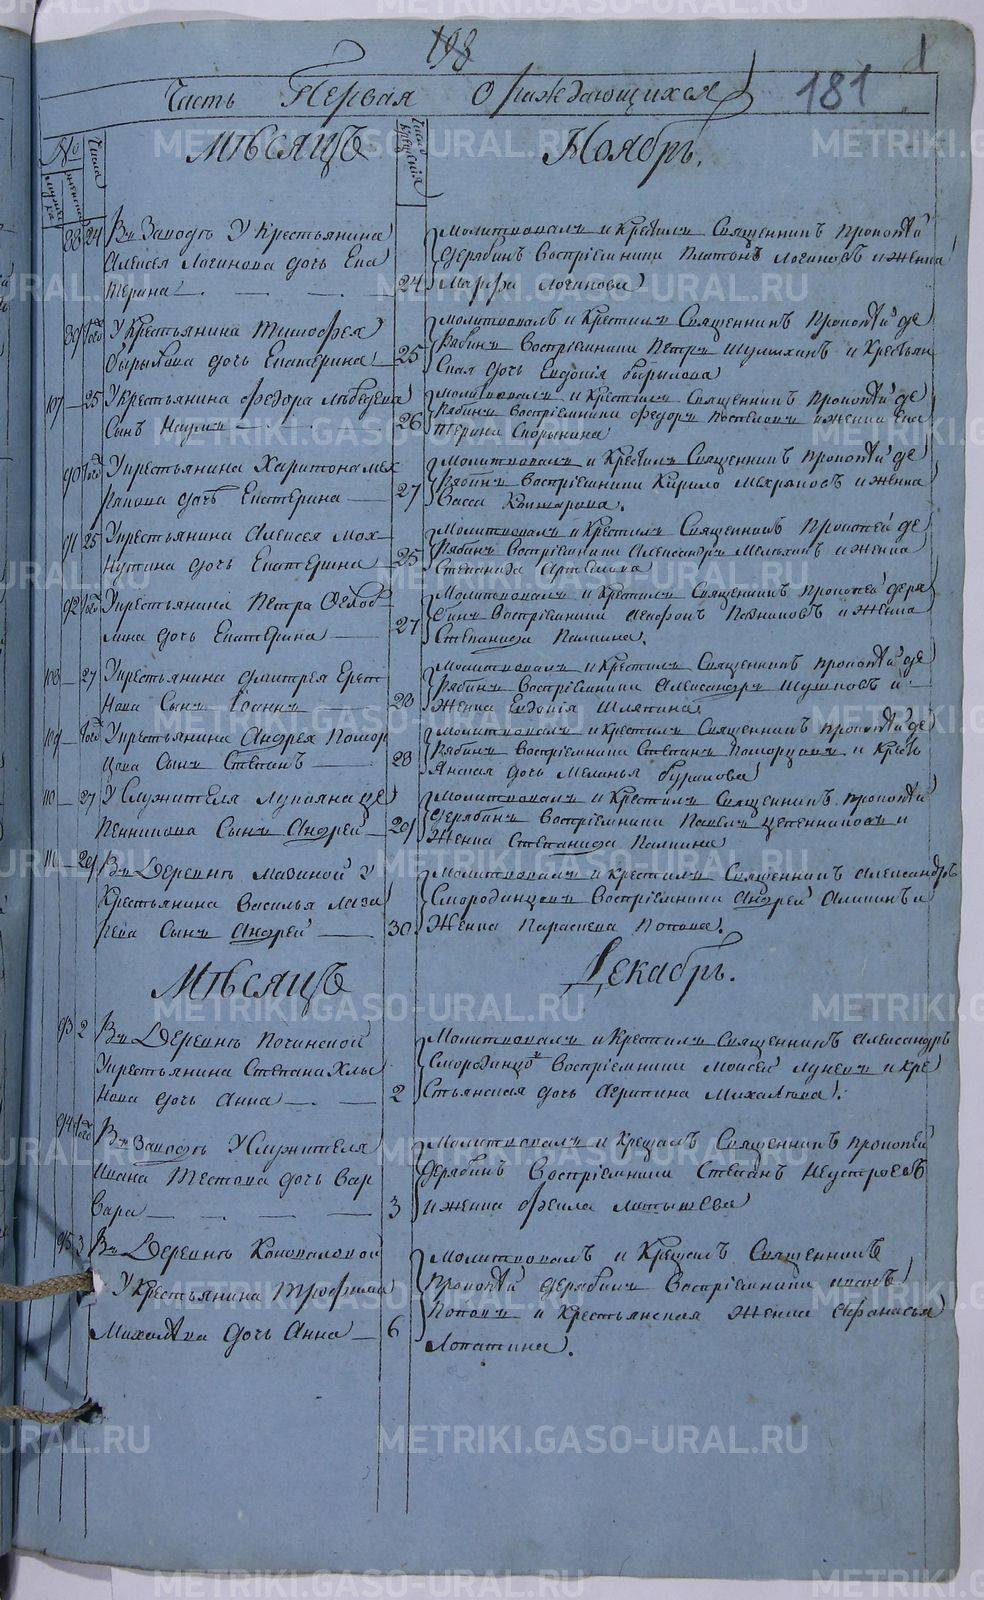 198
181
Часть Первая О раждающихся
№
мужеска
женска
Числа
Число крещенія
Мѣсяцъ Ноябрь.
88 24 Въ Заводѣ У Крестьянина
Алексея Логинова дочь Ека
терина 24
Молитвовалъ и Крестилъ Священникъ Прокопій
Дерябинъ Воспріемники Платонъ Логиновъ и жена
Марфа Логинова
89 того У Крестьянина Тимофея
бырылова дочь Екатерина 25
Молитвовалъ и Крестилъ Священникъ Прокопій де
рябинъ Воспріемники Петръ и Крестьян
ская дочь Евдокія бырылова
107 25 У крестьянина Федора Лебедева
Сынъ Наумъ 26
Молитвовалъ и Крестилъ Священникъ Прокопій де
рябинъ Воспріемники Федоръ и женка Ека
терина
90 того У крестьянина Харитона Мех
дочь Екатерина 27
Молитвовалъ и Крестилъ Священникъ Прокопій де
рябинъ Воспріемники Кирило и женка
Васса
91 25 У крестьянина Алексея Мох
дочь Екатерина 25
Молитвовалъ и Крестилъ Священникъ Прокопей де
рябинъ Воспріемники Александръ и женка
Степанида
92 того У крестьянина Петра
дочь Екатерина 27
Молитвовалъ и Крестилъ Священникъ Прокопей деря
бинъ Воспріемники и женка
Степанида Палкина.
108 27 У крестьянина Дмитрея
Сынъ Іоаннъ 28
Молитвовалъ и Крестилъ Священникъ Прокопій де
рябинъ Воспріемники Александръ и
женка Евдокія Шляпина
109 того У крестьянина Андрея Помор
цова Сынъ Степанъ 28
Молитвовалъ и Крестилъ Священникъ Прокопій де
рябинъ Воспріемники Степанъ Поморцовъ и Кресть
янская дочь Меланья
110 27 У Служителя Лукояна це
пенникова Сынъ Андрей 29
Молитвовалъ и Крестилъ Священникъ Прокопій
Дерябинъ Воспріемники Павелъ цепенниковъ и
женка Степанида Палкина
111 29 Въ Деревнѣ Мазиной У
Крестьянина Василья Лаза
рева Сынъ Андрей 30
Молитвовалъ и Крестилъ Священникъ Александръ
Смородинцовъ Воспріемники Андрей и
женка Параскева Попова.
Мѣсяцъ Декабрь.
93 2 Въ Деревнѣ Починской
У крестьянина Степана Хлы
нова дочь Анна 2
Молитвовалъ и Крестилъ Священникъ Александръ
Смородинцовъ Воспріемники Моисей и кре
стьянская дочь Агрипина Михалева.
94 того Въ Заводѣ У Служителя
Ивана Тестова дочь Вар
вара 3
Молитвовалъ и Крещалъ Священникъ Прокопей
Дерябинъ Воспріемники Степанъ Неустроевъ
и женка Фекла Латышева
95 3 Въ Деревнѣ Коноваловой
У Крестьянина Трофима
Михалева дочь Анна 6
Молитвовалъ и Крещалъ Священникъ
Прокопій дерябинъ Воспріемники
Поповъ и Крестьянская женка Афанасья
Лопатина.
METRIKI.GASO-URAL.RU